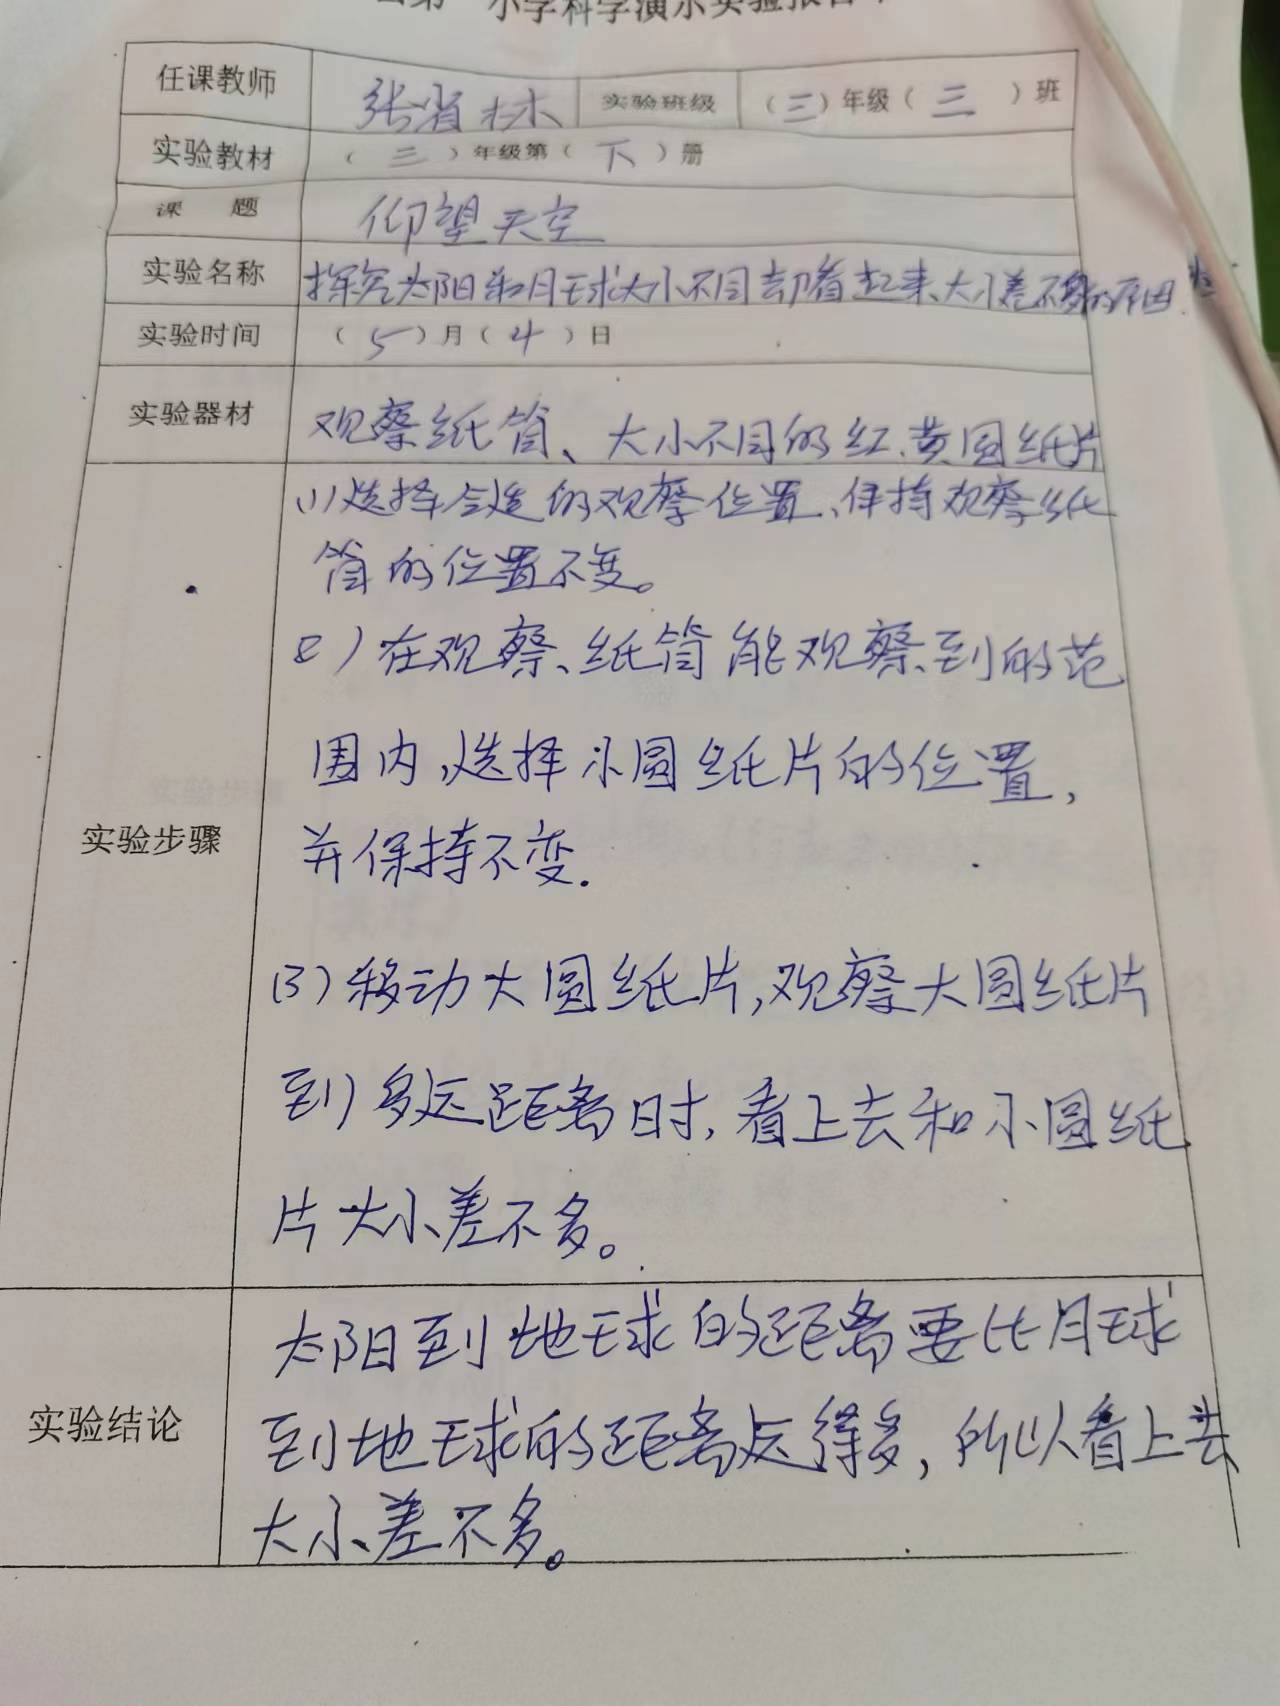 小学科学演示实验报告单
任课教师 张省林 实验班级 （三）年级（三）班
实验教材 （三）年级第（下）册
课 题 仰望天空
实验名称 探究太阳和月球大小不同却看起来大小差不多的原因.
实验时间 （5）月（4）日
实验器材 观察纸筒、大小不同的红、黄圆纸片
实验步骤
(1)选择合适的观察位置、保持观察纸
筒的位置不变。
2)在观察纸筒能观察到的范
围内,选择小圆纸片的位置,
并保持不变.
(3)移动大圆纸片,观察大圆纸片
到多远距离时,看上去和小圆纸
片大小差不多。
实验结论
太阳到地球的距离要比月球
到地球的距离远得多,所以看上去
大小差不多。